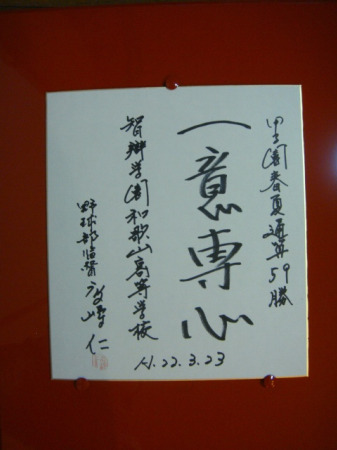 甲子園春夏通算59勝
一意専心
智辯学園和歌山高等学校
野球部監督 高嶋 仁
H.22.3.23